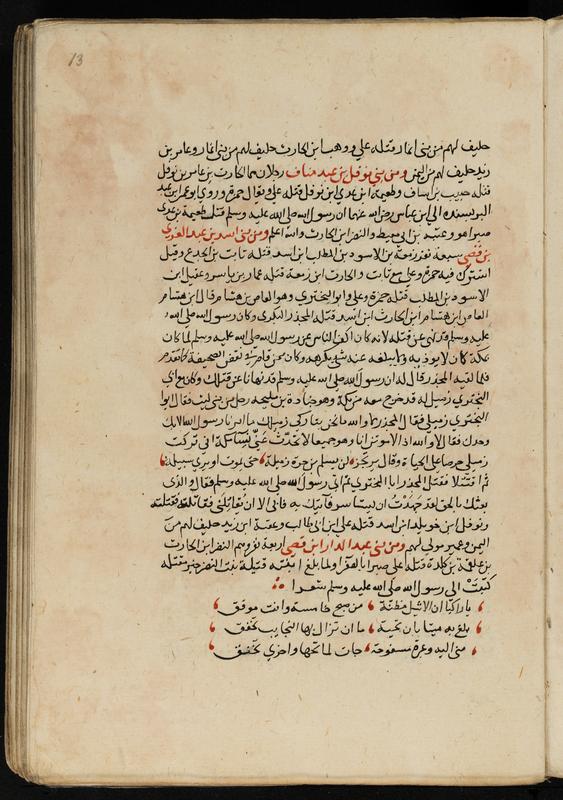 13
حليف لهم من بني انمار قتله علي ووهب ابن الحارث حليف لهم من بني انمار وعامر بن
زيد حليف لهم من اليمن ومن بني نوفل بن عبد مناف رجلان هما الحارث بن عامر بن نوفل
قتله خبيب بن اساف وطعيمة ابن عدي ابن نوفل قتله علي ويقال حمزة وروي ابو عمر ابن عبد
البر بسنده الي ابن عباس رضي الله عنهما ان رسول الله صلي الله عليه وسلم قتل طعيمة بن عدي
صبرا هو وعقبة بن ابي معيط والنضر ابن الحارث والله اعلم ومن بني اسد بن عبد العزي
بن قصي سبعة نفر زمعة بن الاسود بن المطلب ابن اسد قتله ثابت بن الجدع وقيل
اشترك فيه حمزة وعلي مع ثابت والحارث ابن زمعة قتله عمار بن ياسر وعقيل ابن
الاسود بن المطلب قتله حمزة وعلي وابو البختري وهو العاص بن هشام قال ابن هشام
العاص ابن هشام ابن الحارث ابن اسد قتله المجذر البكري وكان رسول الله صلي الله
عليه وسلم قد نهي عن قتله لانه كان اكف الناس عن رسول الله صلي الله عليه وسلم لما كان
بمكة كان لا يوذيه ولا يبلغه عنه شي يكرهه وكان ممن قام في نقض الصحيفة كما تقدم
فلما لقيه المجذر قال له ان رسول الله صلي الله عليه وسلم قد نهانا عن قتلك وكان مع ابي
البختري زميل له قد خرج معه من مكة وهو جنادة بن مليحة رجل من بني ليث فقال ابو
البختري زميلي فقال المجذر لا والله ما نحن بتاركي زميلك ما امرنا رسول الله الا بك
وحدك فقال لا والله اذا لاموتن انا وهو جميعا لا تحدث عني نساء مكة اني تركت
زميلي حرصا علي الحياة وقال يرتجز لن يسلم بن حرة زميله حتي يموت او يري سبيله
ثم اقتتلا فقتل المجذر ابا البختري ثم اتي رسول الله صلي الله عليه وسلم فقال والذي
بعثك بالحق لقد جهدت ان يستاسر فاتيك به فابي الا ان يقاتلني فقاتلته فقتلته
ونوفل ابن خويلد ابن اسد قتله علي ابن ابي طالب وعقبة ابن زيد حليف لهم من
اليمن وعمير مولي لهم ومن بني عبد الدار ابن قصي اربعة نفر وهم النضر ابن الحارث
بن علقمة بن كلدة قتله علي صبرا بالصفرا ولما بلغ ابنته قتيلة بنت النضر خبر مقتله
كتبت الي رسول الله صلي الله عليه وسلم شعرا
يا راكبا ان الاثيل مظنة من صبح خامسة وانت موفق
بلغ به ميتا بان تحية ما ان تزال بها النجايب تخفق
مني اليه وعبرة مسفوحة جادت لماتحها واخري تخنق